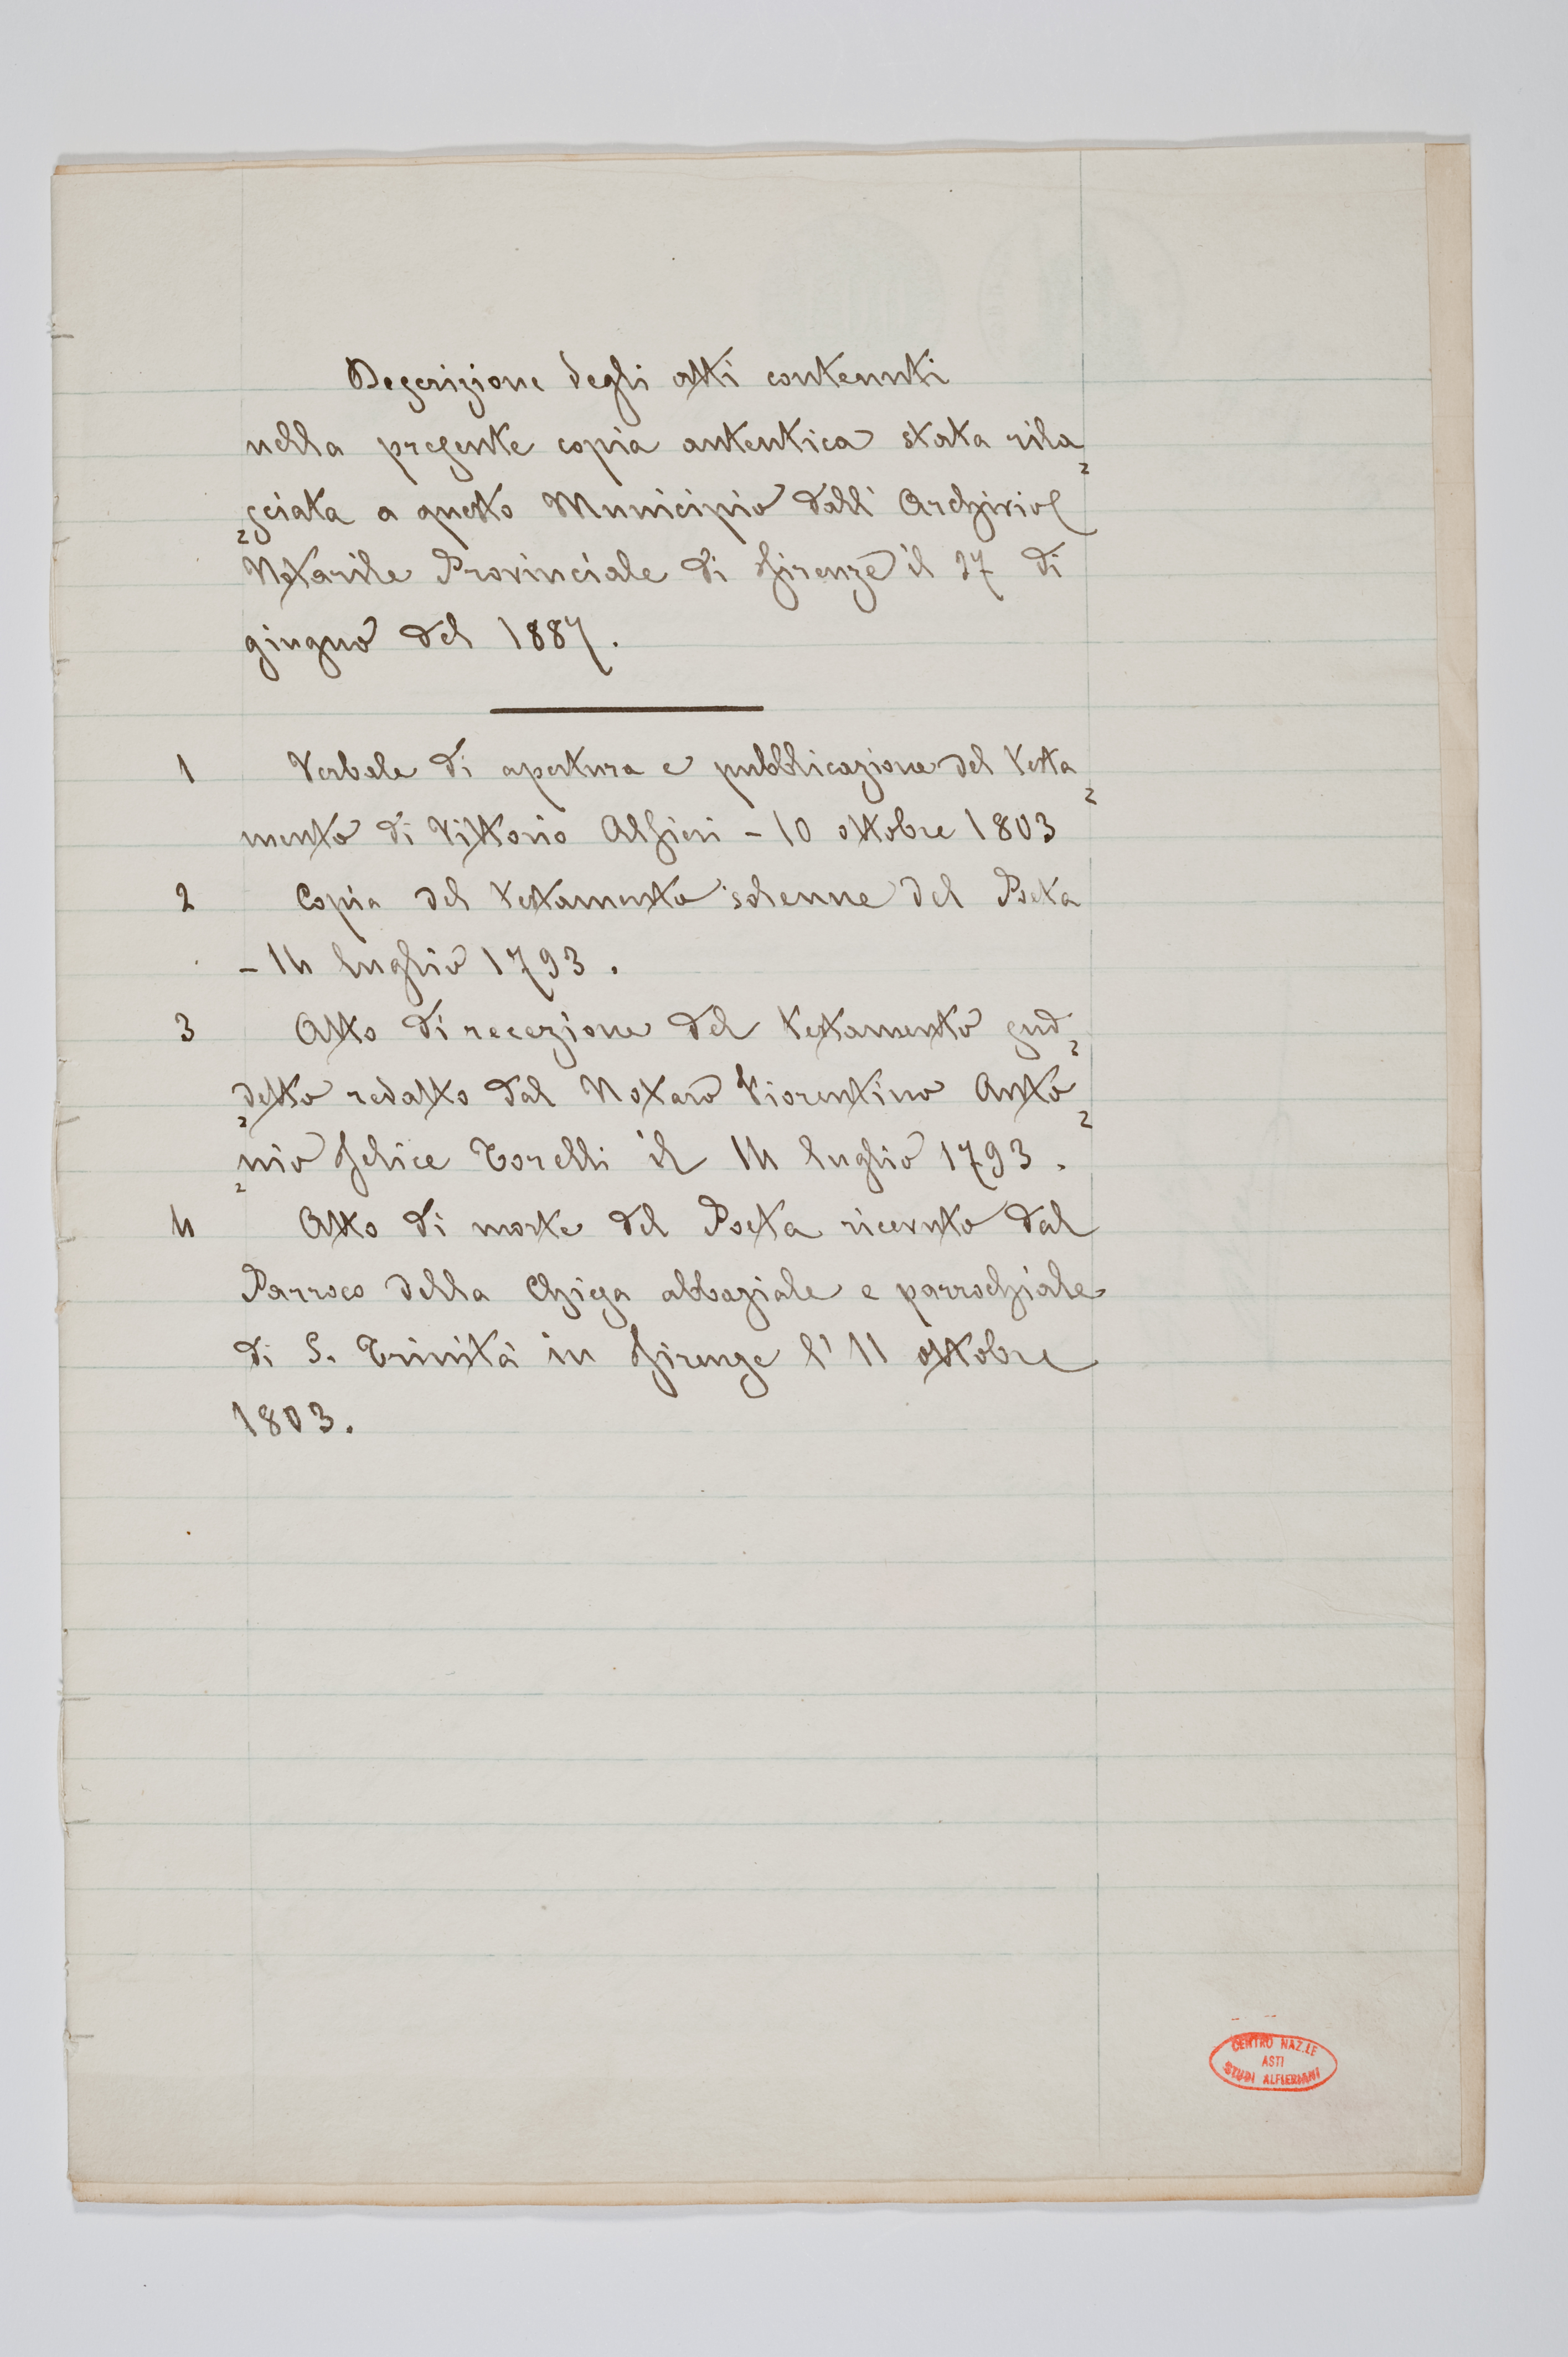 Descrizione degli atti contenuti
nella presente copia autentica stata rila=
=sciata a questo Municipio dall'Archivio
Notarile Provinciale di Firenze il 27 di
giugno del 1887.
1 Verbale di apertura e pubblicazione del Testa=
mento di Vittorio Alfieri - 10 ottobre 1803
2 Copia del testamento solenne del Poeta
- 14 luglio 1793.
3 Atto di recezione del testamento sud=
=detto redatto dal Notaro Fiorentino Anto=
=nio Felice Torelli il 14 luglio 1793.
4 Atto di morte del Poeta ricevuto dal
Parroco della Chiesa abbaziale e parrochiale
di S. Trinità in Firenze l'11 ottobre
1803.
CENTRO NAZ.LE
ASTI
STUDI ALFIERIANI